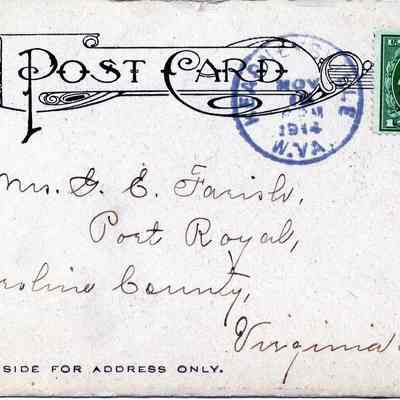 POST CARD
NOV
1914
W.VA.
Mrs. G. E. Farish,
Port Royal,
roline County,
Virginia
SIDE FOR ADDRESS ONLY.